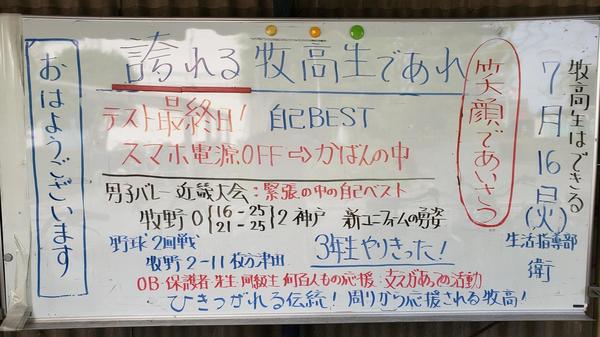 おはようございます
誇れる 牧高生であれ
テスト最終日! 自己BEST
スマホ電源OFF⇨かばんの中
笑顔であいさつ
7月16日(火)
牧高生はできる
生活指導部
衛
男子バレー 近畿大会:緊張の中の自己ベスト
牧野0(16-25 21-25)2神戸 新ユニフォームの勇姿
野球2回戦
牧野2-11枚方津田
3年生やりきった!
OB・保護者・先生・同級生 何百人もの応援:支えがあっての活動
ひきつがれる伝統! 周りから応援される牧高!